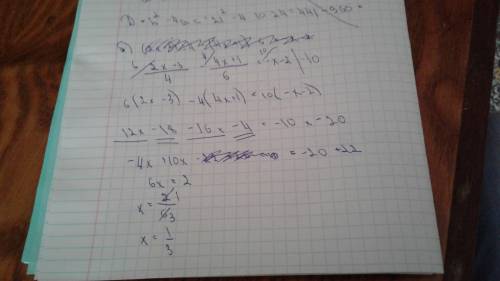 D = b² - 4ac = 21² - 4 · 10 · 24 = 441 - 960 =
б)
6 2x-3/4 - 4 4x+1/6 = 10 -x-2 | · 10
6(2x-3) - 4(4x+1) = 10(-x-2)
12x - 18 - 16x - 4 = -10x - 20
-4x + 10x = -20 + 22
6x = 2
x = 2 1/6 3
x = 1/3